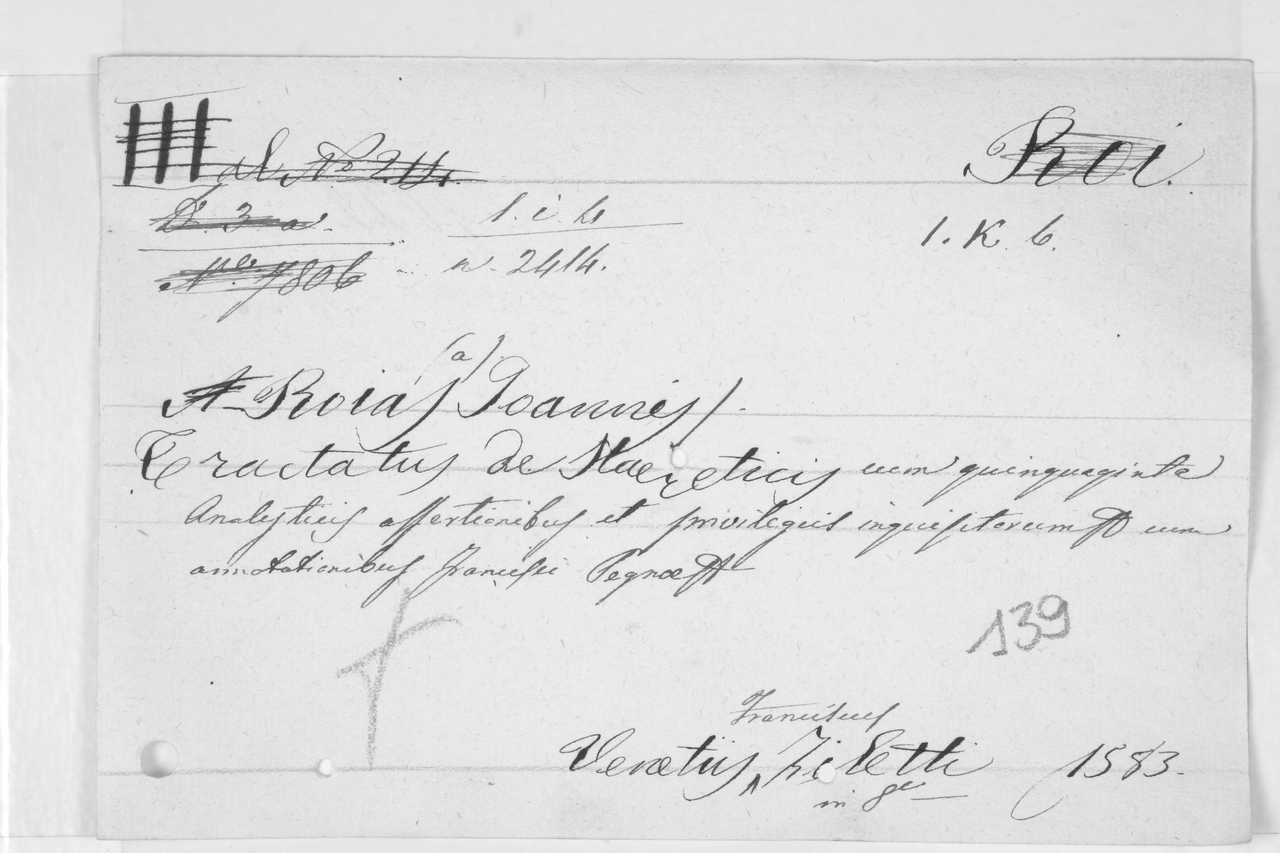 III ad N° 214. Roi.
D. 3 a. 1. i. 4 1. K. 6.
N° 7806 n. 2414.
(a)
A Roias Joannes).
Tractatus de Haereticis cum quinquaginta
Analyticis assertionibus et privilegiis inquisitorum et cum
annotationibus Francisci Pegnae
139
Franciscus
Venetiis Ziletti 1583.
in 8°